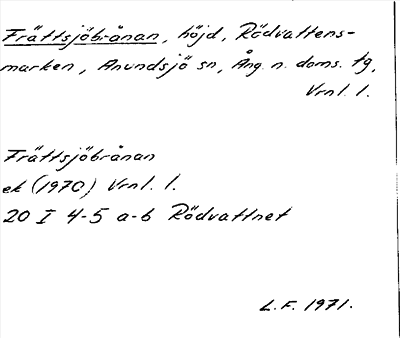 Frättsjöbrånan, höjd, Rödvattens-
marken, Anundsjö sn, Ång. n. doms. tg,
Vrnl. l.
Frättsjöbrånan
ek (1970) Vrnl. l.
20 I 4-5 a-b Rödvattnet
L.F. 1971.